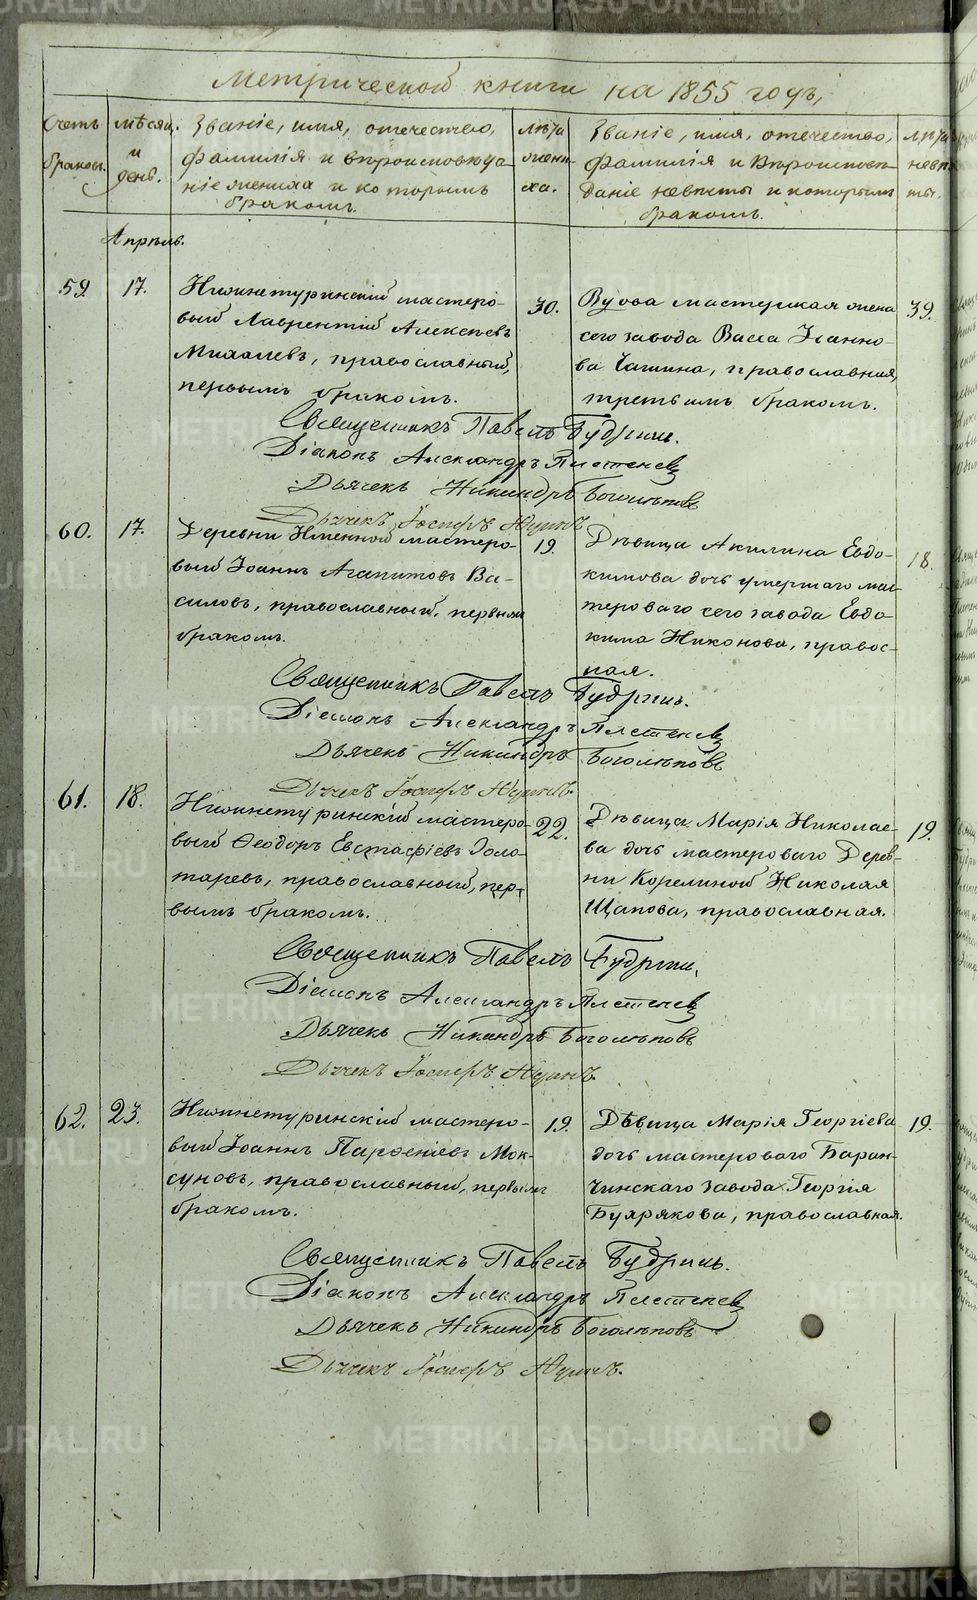 METRIKI.GASO-URAL.RU
Метрической книги на 1855 годъ,
Счетъ браковъ.
Мѣсяц. и день.
Званіе, имя, отечество,
фамилія и вѣроисповѣда-
ніе жениха и которымъ
бракомъ.
Лѣта жени-
ха.
Званіе, имя, отечество,
фамилія и вѣроисповѣ-
даніе невѣсты и которымъ
бракомъ.
Лѣта невѣ-
сты.
Апрѣль.
59 17.
Нижнетуринскій мастеро-
вый Лаврентій Алексѣевъ
Михалевъ, православный,
первымъ бракомъ.
30.
Вдова мастерская жена
сего завода Васса Іоанно-
ва Чашина, православная,
третьимъ бракомъ.
39.
Священникъ Павелъ Будринъ.
Діаконъ Александръ Плетенев
Дьячекъ Никандръ Боголѣповъ
Дьячекъ Іосифъ
60. 17.
Деревни Именной мастеро-
вый Іоаннъ Агапитовъ Ва-
силовъ, православный, первымъ
бракомъ.
19.
Дѣвица Акилина Евдо-
кимова дочь умершаго мас-
тероваго сего завода Евдо-
кима Никонова, правос-
ная.
18.
Священникъ Павелъ Будринъ.
Діаконъ Александръ Плетенев
Дьячекъ Никандръ Боголѣповъ
Дьячекъ Іосифъ
61. 18.
Нижнетуринскій мастеро-
вый Ѳеодоръ Евстафіевъ Золо-
таревъ, православный, пер-
вымъ бракомъ.
22.
Дѣвица Марія Николае-
ва дочь мастероваго Дерев-
ни Корелиной Николая
Щапова, православная.
19.
Священникъ Павелъ Будринъ.
Діаконъ Александръ Плетенев
Дьячекъ Никандръ Боголѣповъ
Дьячекъ Іосифъ
62. 23.
Нижнетуринскій мастеро-
вый Іоаннъ Парѳеніевъ Мок-
суновъ, православный, первымъ
бракомъ.
19.
Дѣвица Марія Георгіева
дочь мастероваго Баран-
чинскаго завода Георгія
Бузрякова, православная.
19.
Священникъ Павелъ Будринъ.
Діаконъ Александръ Плетенев
Дьячекъ Никандръ Боголѣповъ
Дьячекъ Іосифъ